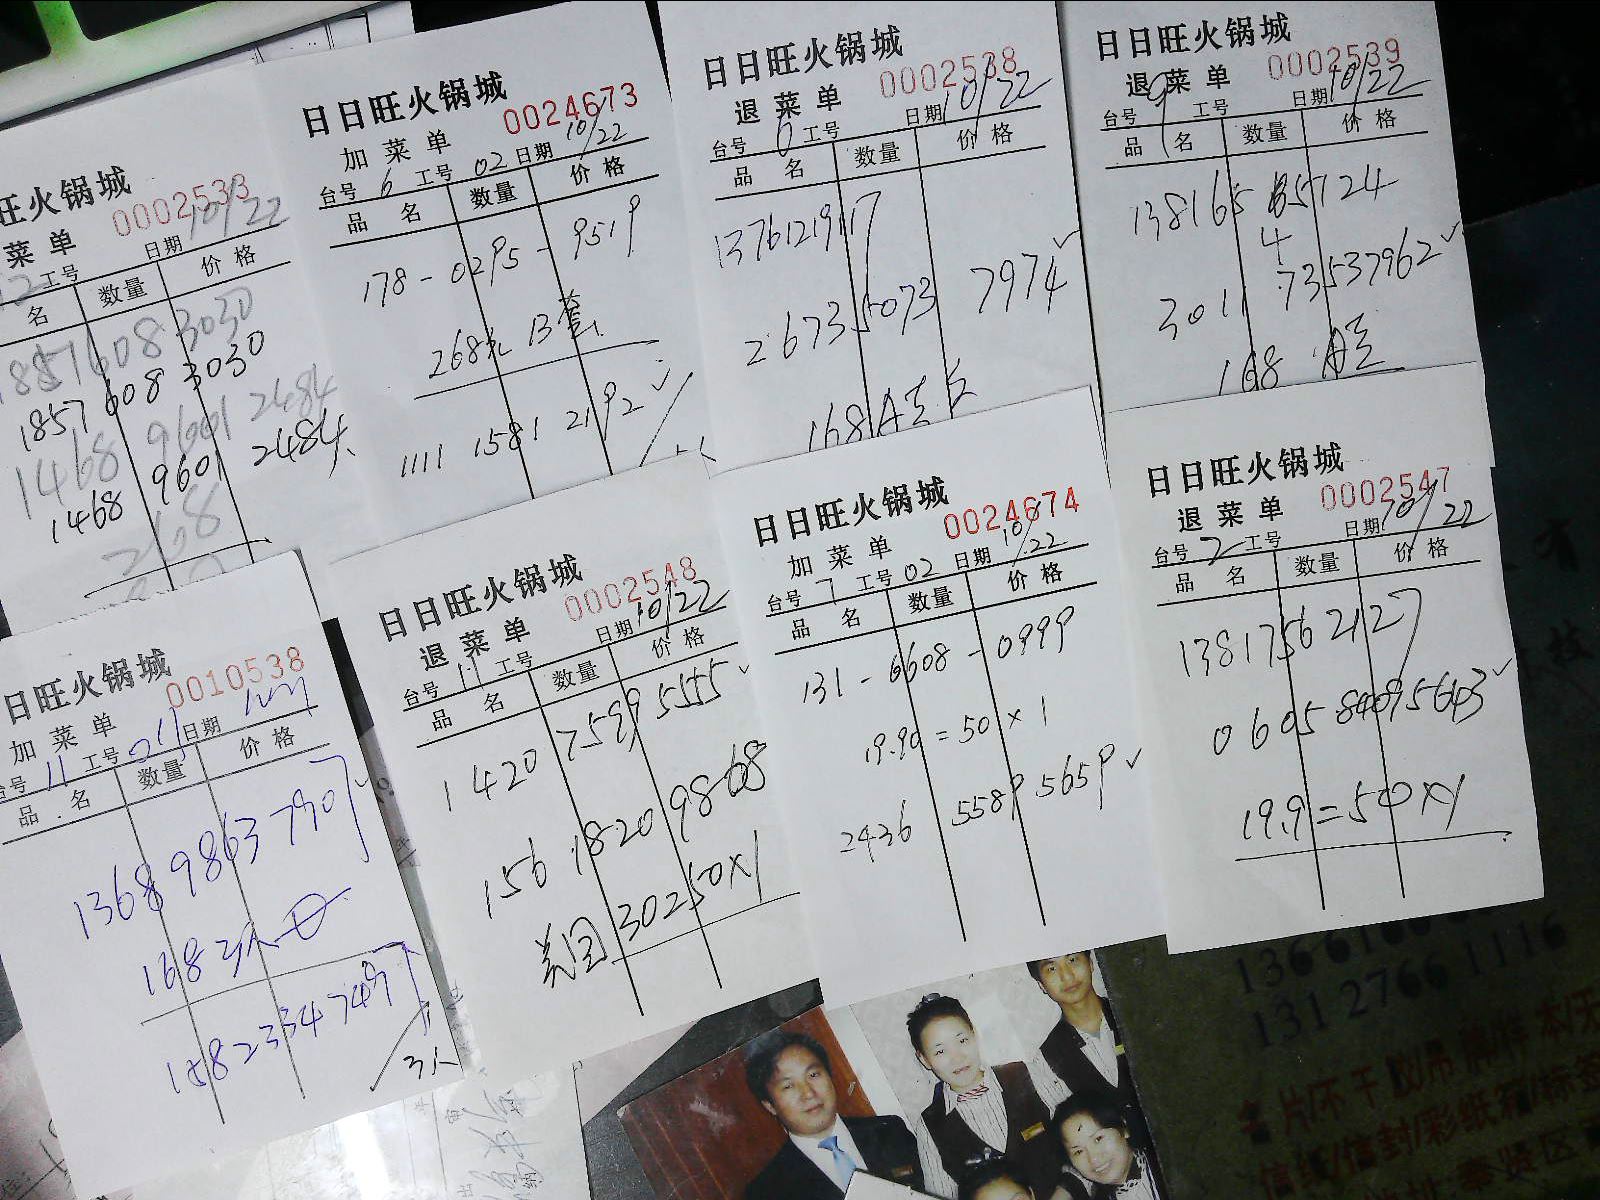 旺火锅城
0002533
菜单
10/22
工号 日期
名 数量 价格
1857 608 3030
1857 608 3030
1468 9601 2484
1468 9601 2484
268
日日旺火锅城
0024673
加菜单
台号 6 工号 02 日期 10/22
品名 数量 价格
178-0295-9519
268元 13套
1111 1581 2192
日日旺火锅城
0002538
退菜单
台号 6 工号 日期 10/22
品名 数量 价格
13761219117
2673 5073 7974
168A套
日日旺火锅城
0002539
退菜单
台号 9 工号 日期 10/22
品名 数量 价格
138165 85124
4
3011 73537962
168 A套
日日旺火锅城
0010538
加菜单
台号 11 工号 日期
品名 数量 价格
1368 9863 7907
168 2人
158 2334 7497
3人
日日旺火锅城
0002548
退菜单
台号 11 工号 日期 10/22
品名 数量 价格
1420 7599 5555
156 1820 9868
美团 30250×1
日日旺火锅城
0024674
加菜单
台号 7 工号 02 日期 10/22
品名 数量 价格
131-6608-0999
19.90=50×1
2436 5589 5659
日日旺火锅城
0002547
退菜单
台号 2 工号 日期 10/22
品名 数量 价格
13817562127
0605 8409 5643
19.9=50×1
1312766 1116